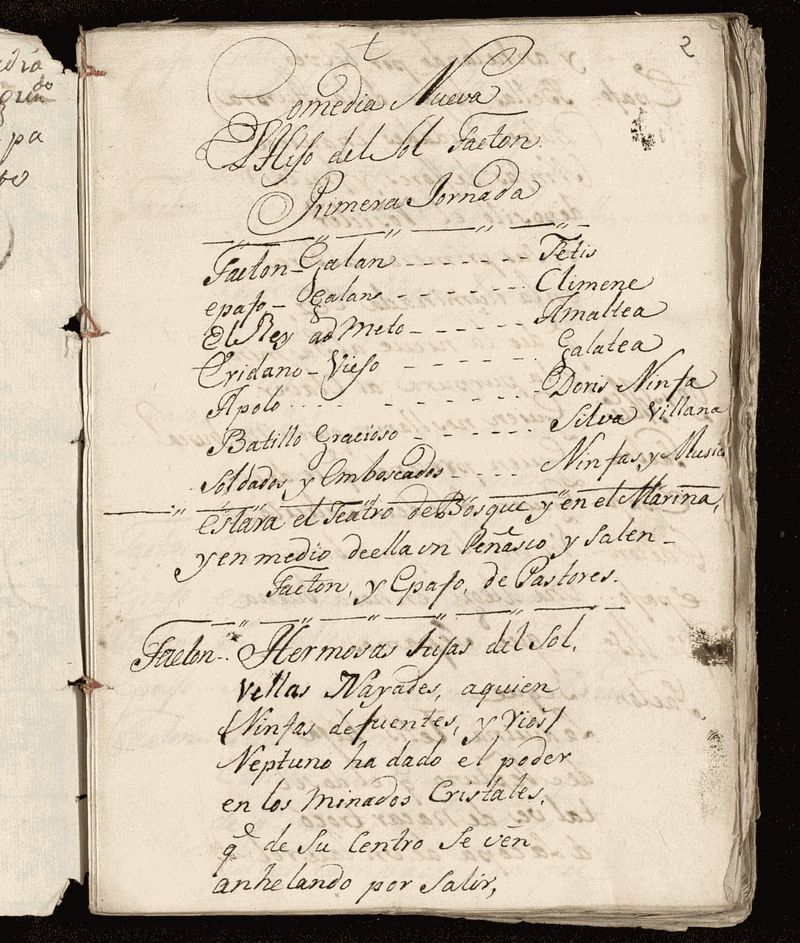 2
Comedia Nueva
El Hijo del Sol Faeton.
Primera Jornada
Faeton - Galan - - - - - - Tetis
epafo - Galan - - - - - - Climene
el Rey ad Meto - - - - - - Amaltea
Eridano - Viejo - - - - - - Galatea
Apolo . . . . - - - - - Doris Ninfa
Batillo Gracioso - - - - - - Silva Villana
Soldados y Emboscados - - - Ninfas y Music
estara el Teatro de Bosque y en el Marina,
y en medio deella un Peñasco y Salen -
Faeton, y Epafo, de Pastores.
Faeton - Hermosas hijas del Sol,
vellas Nayades, aquien
(Ninfas defuentes, y Rios)
Neptuno ha dado el poder
en los minados Cristales,
qe de Su Centro Se ven
anhelando por Salir,